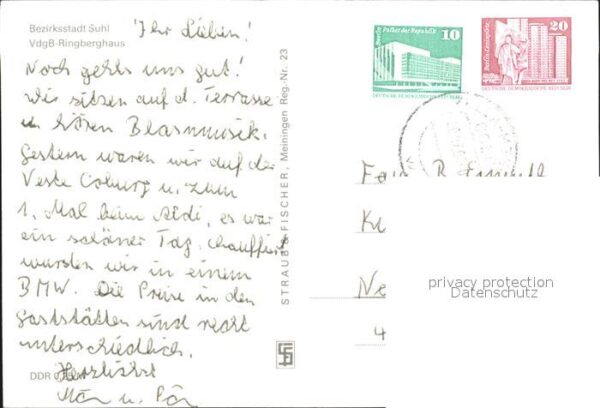 Bezirksstadt Suhl
VdgB-Ringberghaus
Ihr Lieben!
Noch gehts uns gut!
Wir sitzen auf d. Terrasse
u. hören Blasmusik.
Gestern waren wir auf der
Veste Coburg u. zum
1. Mal beim Aldi, es war
ein schöner Tag. Chauffiert
wurden wir in einem
BMW. Die Preise in den
Gaststätten sind recht
unterschiedlich.
Herzlichst
u.
DDR 0,20 M
STRAUB & FISCHER, Meiningen Reg.-Nr. 23
Berlin, Palast der Republik
10
DEUTSCHE DEMOKRATISCHE REPUBLIK
Berlin, Leninplatz
20
DEUTSCHE DEMOKRATISCHE REPUBLIK
Fam.
Ne
4
privacy protection
Datenschutz